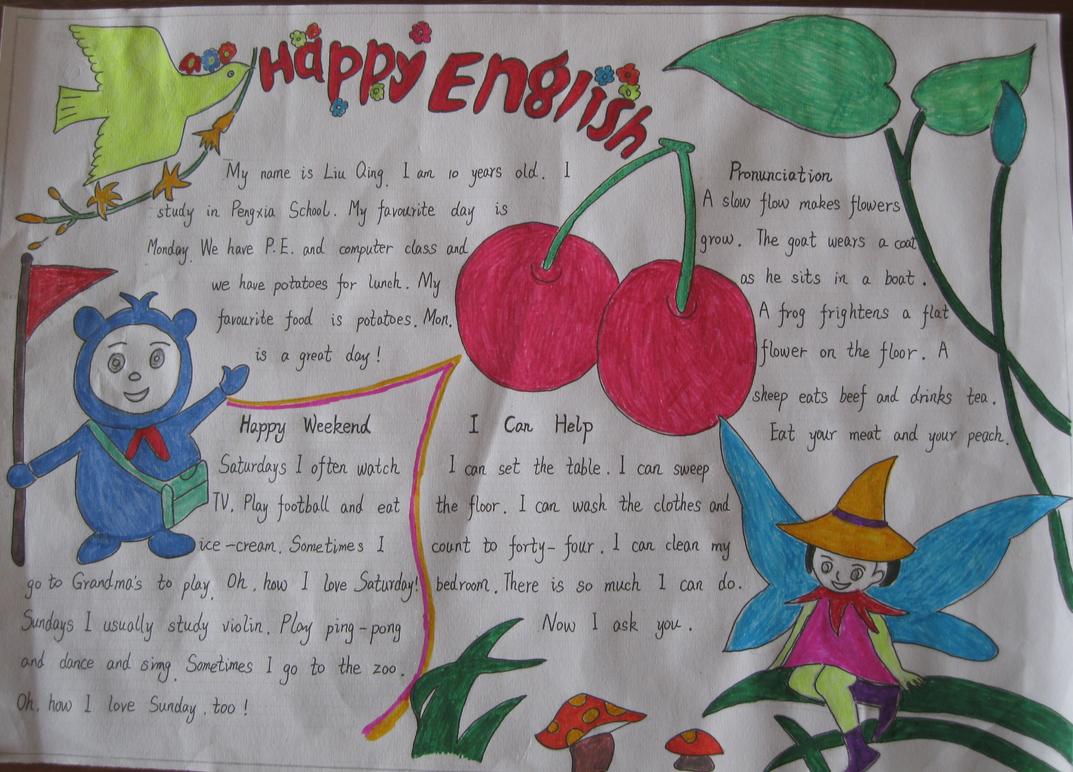 Happy English
My name is Liu Qing. I am 10 years old. I
study in Pengxia School. My favourite day is
Monday. We have P.E. and computer class and
we have potatoes for lunch. My
favourite food is potatoes. Mon.
is a great day!
Pronunciation
A slow flow makes flowers
grow. The goat wears a coat
as he sits in a boat.
A frog frightens a flat
flower on the floor. A
sheep eats beef and drinks tea.
Eat your meat and your peach.
Happy Weekend
Saturdays I often watch
TV. Play football and eat
ice-cream. Sometimes I
go to Grandma's to play. Oh, how I love Saturday!
Sundays I usually study violin. Play ping-pong
and dance and simg. Sometimes I go to the zoo.
Oh, how I love Sunday, too!
I Can Help
I can set the table. I can sweep
the floor. I can wash the clothes and
count to forty-four. I can clean my
bedroom. There is so much I can do.
Now I ask you.